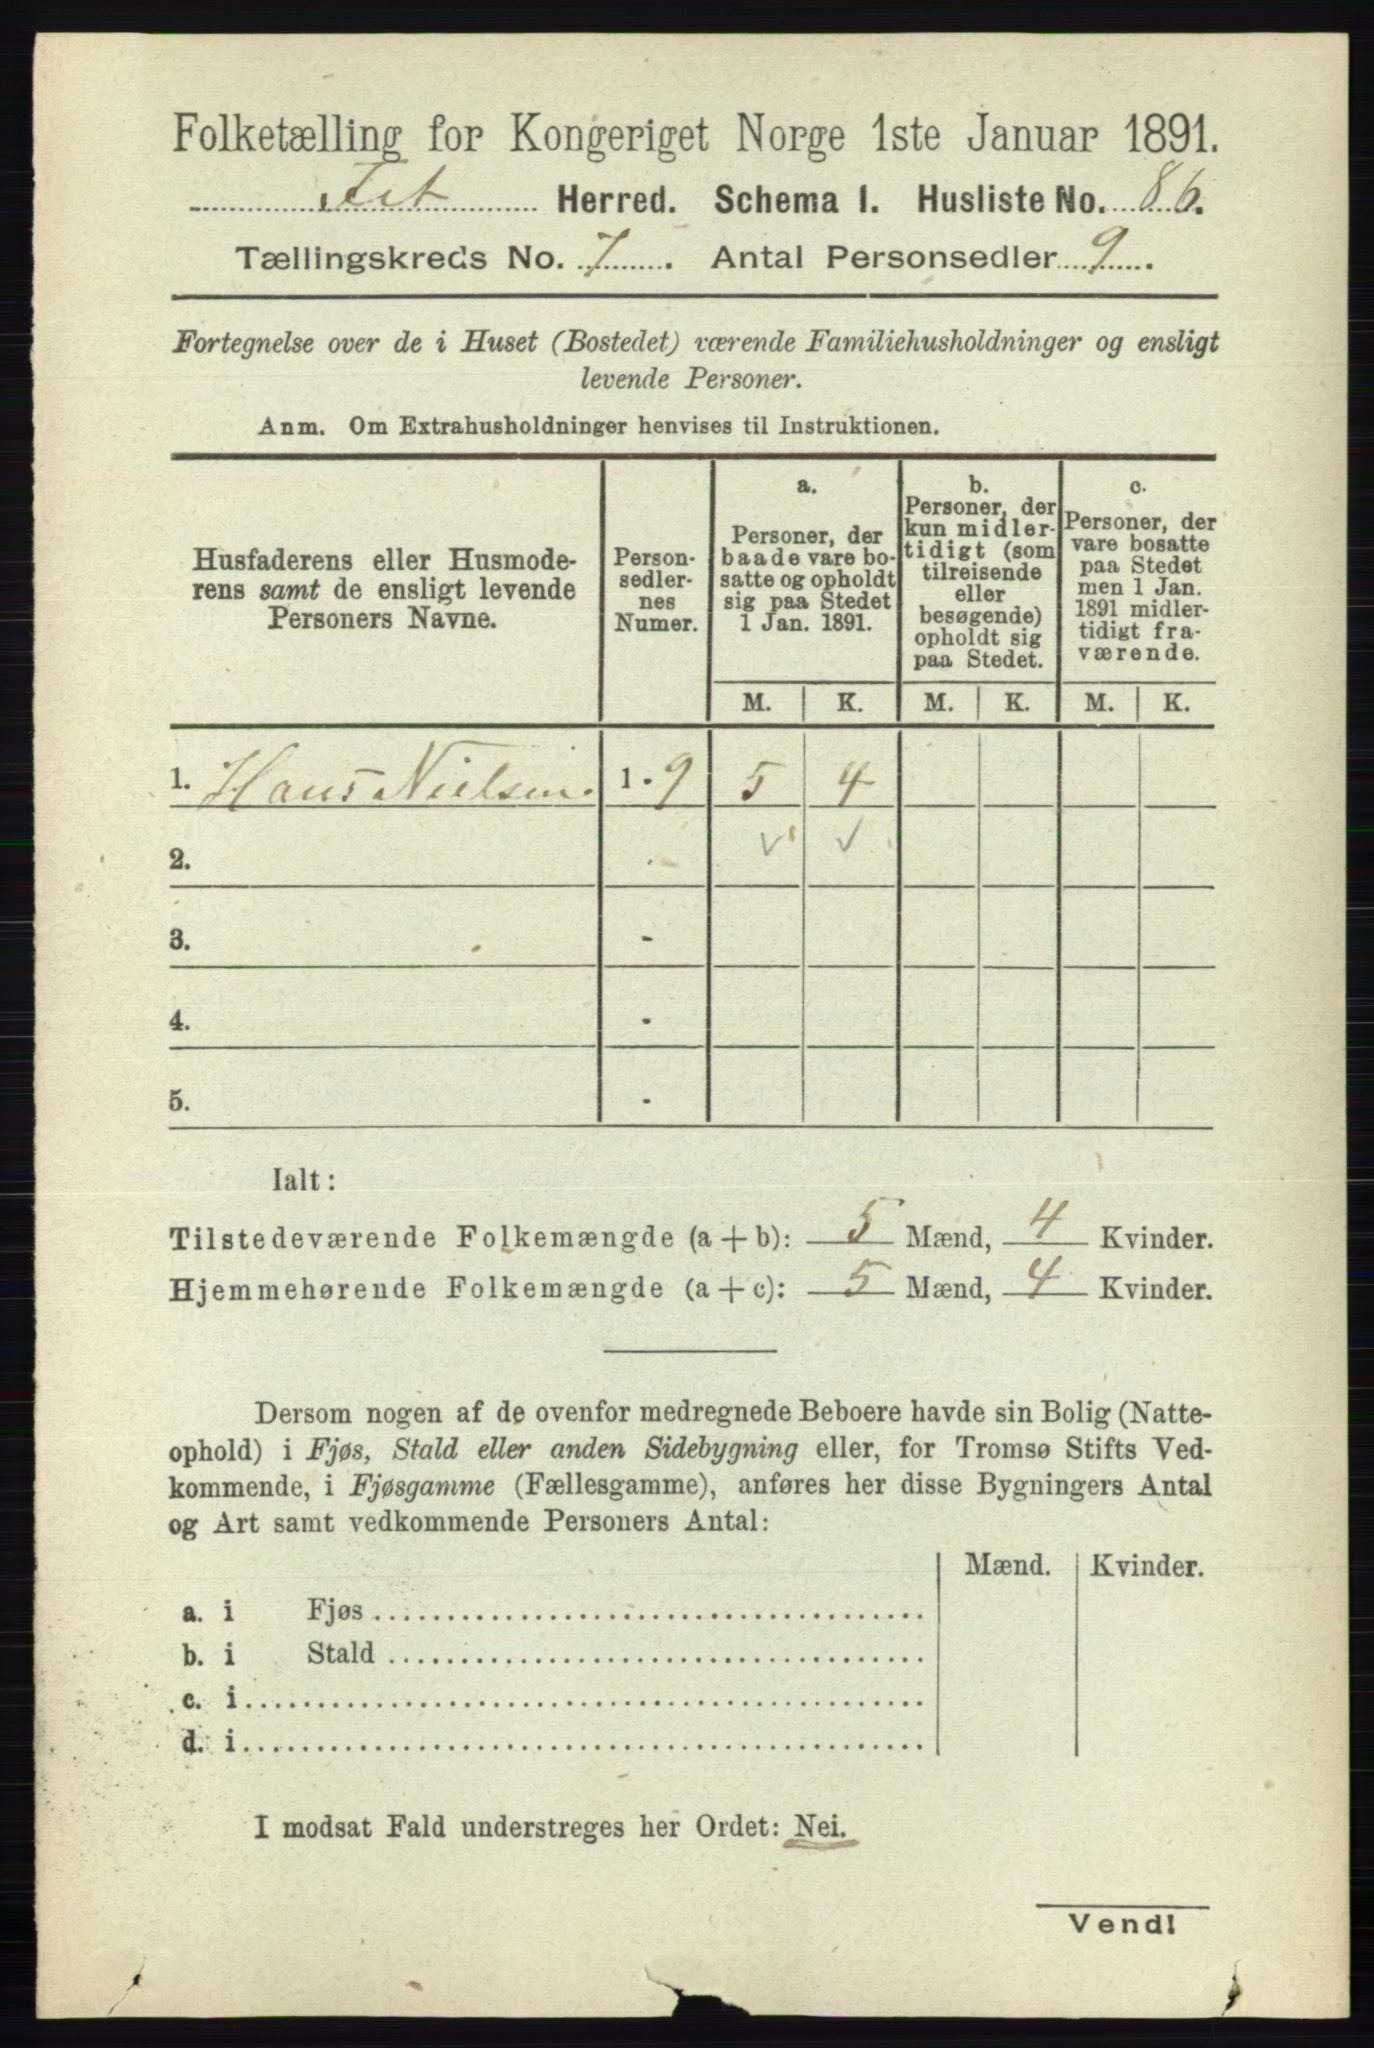 Folketælling for Kongeriget Norge 1ste Januar 1891.
Fet Herred. Schema I. Husliste No. 86.
Tællingskreds No. 7. Antal Personsedler 9.
Fortegnelse over de i Huset (Bostedet) værende Familiehusholdninger og ensligt
levende Personer.
Anm. Om Extrahusholdninger henvises til Instruktionen.
Husfaderens eller Husmode-
rens samt de ensligt levende
Personers Navne.
Person-
sedler-
nes
Numer.
a.
Personer, der
baade vare bo-
satte og opholdt
sig paa Stedet
1 Jan. 1891.
b.
Personer, der
kun midler-
tidigt (som
tilreisende
eller
besøgende)
opholdt sig
paa Stedet.
c.
Personer, der
vare bosatte
paa Stedet
men 1 Jan.
1891 midler-
tidigt fra-
værende.
M. K. M. K. M. K.
1. Hans Nielsen. 1 - 9 5 4
2. - ✓ ✓
3. -
4. -
5. -
Ialt:
Tilstedeværende Folkemængde (a + b): 5 Mænd, 4 Kvinder.
Hjemmehørende Folkemængde (a + c): 5 Mænd, 4 Kvinder.
Dersom nogen af de ovenfor medregnede Beboere havde sin Bolig (Natte-
ophold) i Fjøs, Stald eller anden Sidebygning eller, for Tromsø Stifts Ved-
kommende, i Fjøsgamme (Fællesgamme), anføres her disse Bygningers Antal
og Art samt vedkommende Personers Antal:
Mænd. Kvinder.
a. i Fjøs
b. i Stald
c. i
d. i
I modsat Fald understreges her Ordet: Nei.
Vend!